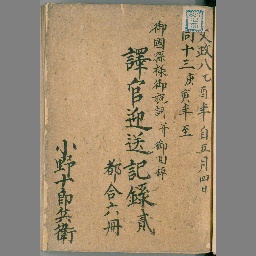 文政八乙酉年自五月四日
同十三庚寅年至
御國深様御說詞并御口掉
譯官迎送記録貳
都合六冊
小野十郎兵衛